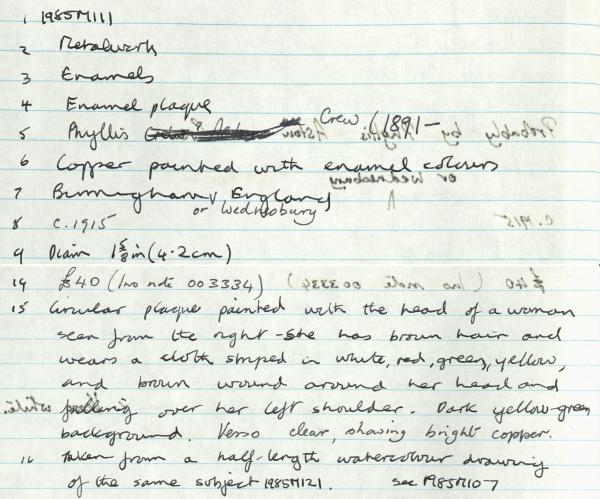 1 1985M111
2 Metalwork
3 Enamels
4 Enamel plaque
5 Phyllis Crew (1891-
6 Copper painted with enamel colours
7 Birmingham, England
or Wednesbury
8 c.1915
9 Diam 1 5/8 in (4.2cm)
14 £40 (Inv note 003334)
15 Circular plaque painted with the head of a woman
seen from the right - she has brown hair and
wears a cloth striped in white, red, green, yellow,
and brown wound around her head and
falling over her left shoulder. Dark yellow-green
background. Verso clear, showing bright copper.
16 Taken from a half-length watercolour drawing
of the same subject 1985M121. see 1985M107